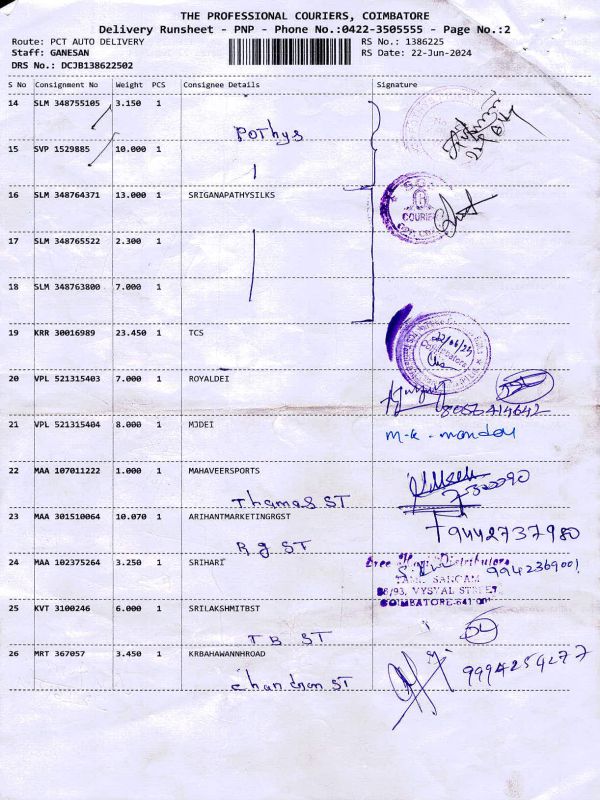 THE PROFESSIONAL COURIERS, COIMBATORE
Delivery Runsheet - PNP - Phone No.:0422-3505555 - Page No.:2
Route: PCT AUTO DELIVERY RS No.: 1386225
Staff: GANESAN RS Date: 22-Jun-2024
DRS No.: DCJB138622502
S No Consignment No Weight PCS Consignee Details Signature
14 SLM 348755105 3.150 1
Pothys
15 SVP 1529885 10.000 1
16 SLM 348764371 13.000 1 SRIGANAPATHYSILKS
COURIER
17 SLM 348765522 2.300 1
18 SLM 348763800 7.000 1
19 KRR 30016989 23.450 1 TCS
22/06/24
Coimbatore
20 VPL 521315403 7.000 1 ROYALDEI
8056414642
21 VPL 521315404 8.000 1 MJDEI
22 MAA 107011222 1.000 1 MAHAVEERSPORTS
Thomas ST
23 MAA 301510064 10.070 1 ARIHANTMARKETINGRGST
9442737980
R g ST
24 MAA 102375264 3.250 1 SRIHARI
9942369001
86/93, VYSYAL STREET,
COIMBATORE-641 001
25 KVT 3100246 6.000 1 SRILAKSHMITBST
T B ST
26 MRT 367057 3.450 1 KRBAHAWANNHROAD
9994259277